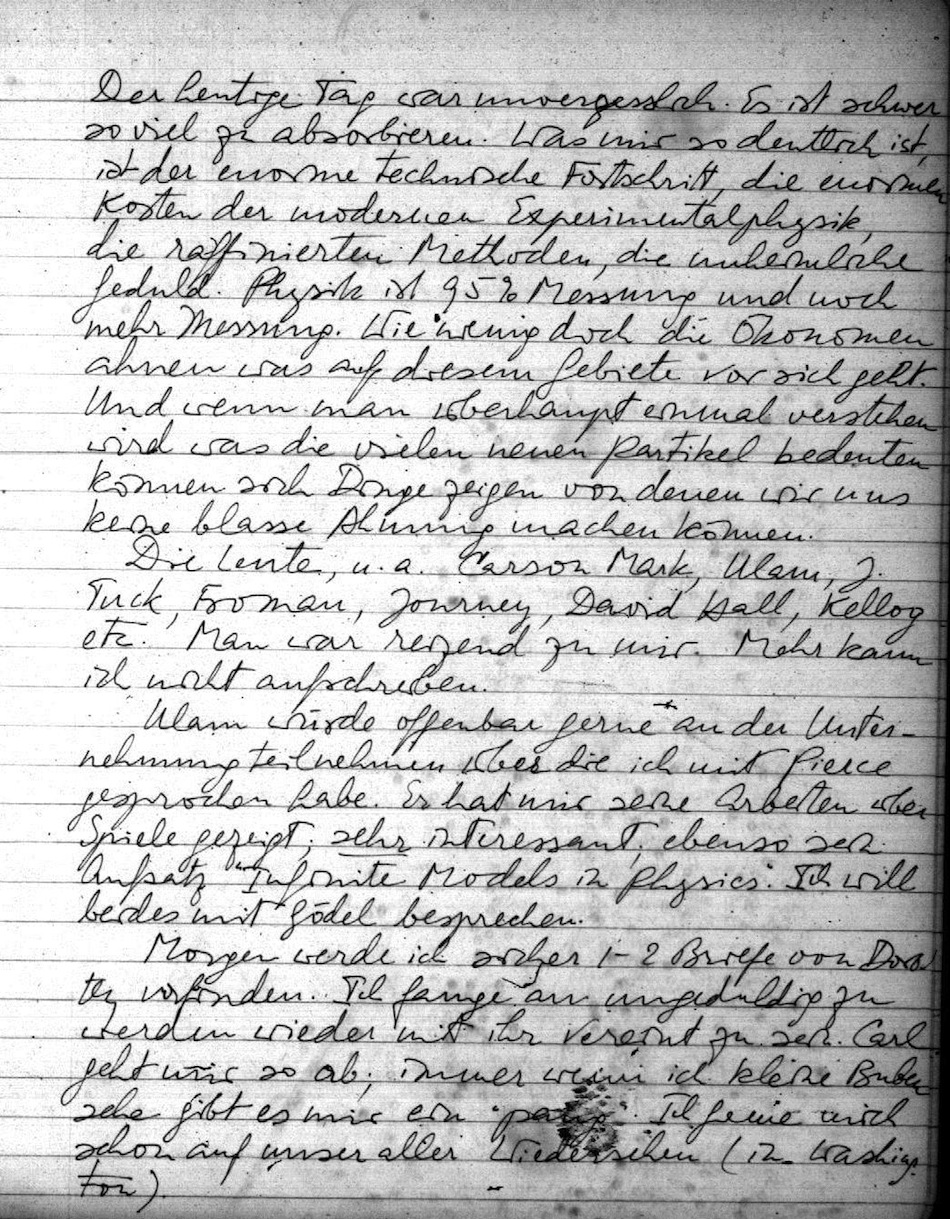 Der heutige Tag war unvergesslich. Es ist schwer
so viel zu absorbieren. Was mir so deutlich ist,
ist der enorme technische Fortschritt, die enormen
Kosten der modernen Experimentalphysik,
die raffinierten Methoden, die unheimliche
Geduld. Physik ist 95% Messung und noch
mehr Messung. Wie wenig doch die Ökonomen
ahnen was auf diesem Gebiete vor sich geht.
Und wenn man überhaupt einmal verstehen
wird was die vielen neuen Partikel bedeuten
können sich Dinge zeigen von denen wir uns
keine blasse Ahnung machen können.
Die Leute, u. a. Carson Mark, Ulam, J.
Tuck, Froman, Journey, David Hall, Kellog
etc. Man war reizend zu mir. Mehr kann
ich nicht aufschreiben.
Ulam würde offenbar gerne an der Unter-
nehmung teilnehmen über die ich mit Pierce
gesprochen habe. Er hat mir seine Arbeiten über
Spiele gezeigt; sehr interessant; ebenso sein
Aufsatz "Infinite Models in Physics". Ich will
beides mit Gödel besprechen.
Morgen werde ich sicher 1-2 Briefe von Doro
thy vorfinden. Ich fange an ungeduldig zu
werden wieder mit ihr vereint zu sein. Carl
geht mir so ab; immer wenn ich kleine Buben
sehe gibt es mir ein "pang". Ich freue mich
schon auf unser aller Wiedersehen (in Washing
ton).